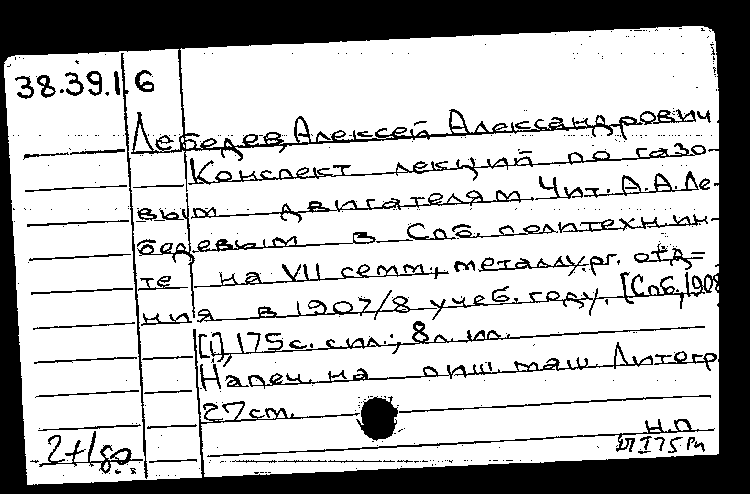 38.39.1.6
Лебедев, Алексей Александрович.
Конспект лекций по газо-
вым двигателям. Чит. А.А. Ле-
бедевым в Спб. политехн. ин-
те на VII семм., металлург. отд=
ния в 1907/8 учеб. году. [Спб, 1908
[1], 175 с. с ил.; 8 л. ил.
Напеч. на пиш. маш. Литогр.
27 см.
н.п
2+1 др.